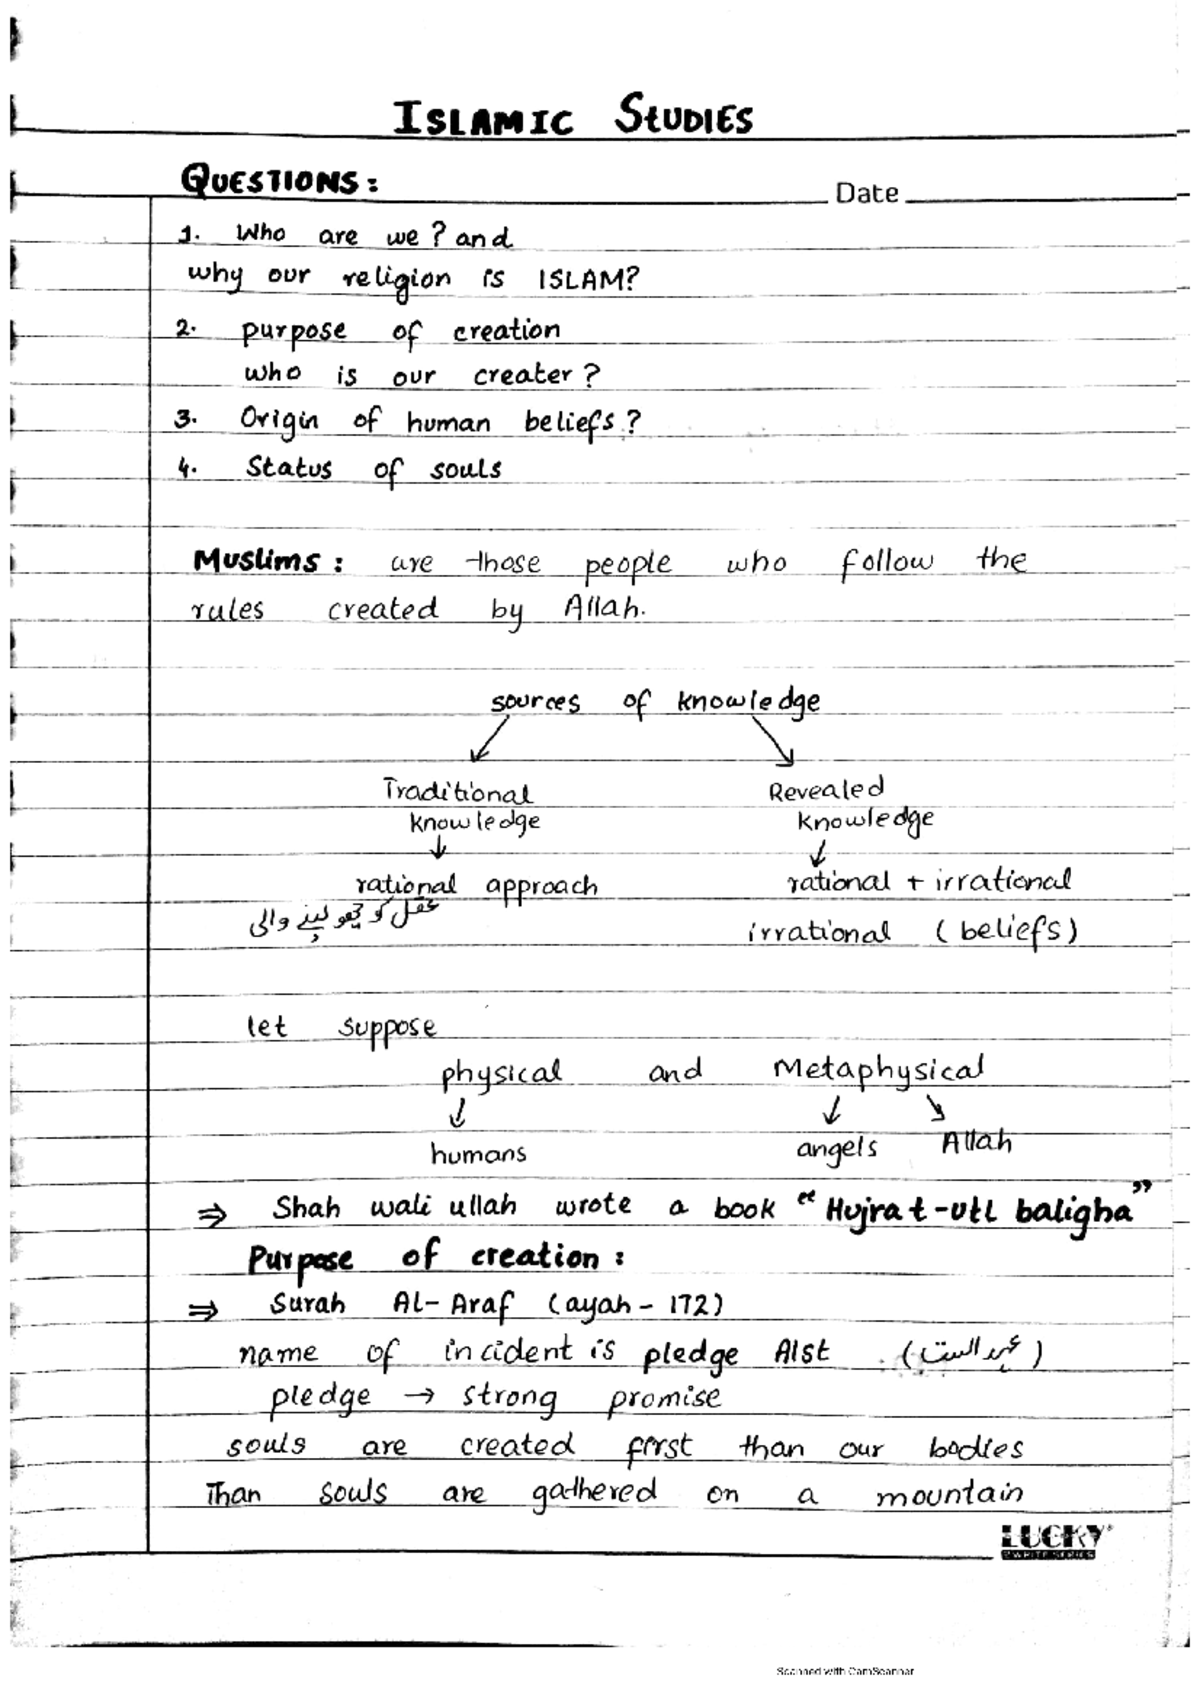 ISLAMIC STUDIES
QUESTIONS:
Date
1. Who are we? and
why our religion is ISLAM?
2. purpose of creation
who is our creater?
3. Origin of human beliefs?
4. Status of souls
Muslims: are those people who follow the
rules created by Allah.
sources of knowledge
Traditional Revealed
knowledge knowledge
rational approach rational + irrational
عقل کو چھو لینے والی
irrational (beliefs)
let suppose
physical and Metaphysical
humans angels Allah
⇒ Shah wali ullah wrote a book "Hujrat-utl baligha"
Purpose of creation:
⇒ Surah Al-Araf (ayah - 172)
name of incident is pledge Alst (عہد الست)
pledge → strong promise
souls are created first than our bodies
Than souls are gathered on a mountain
LUCKY
Scanned with CamScanner